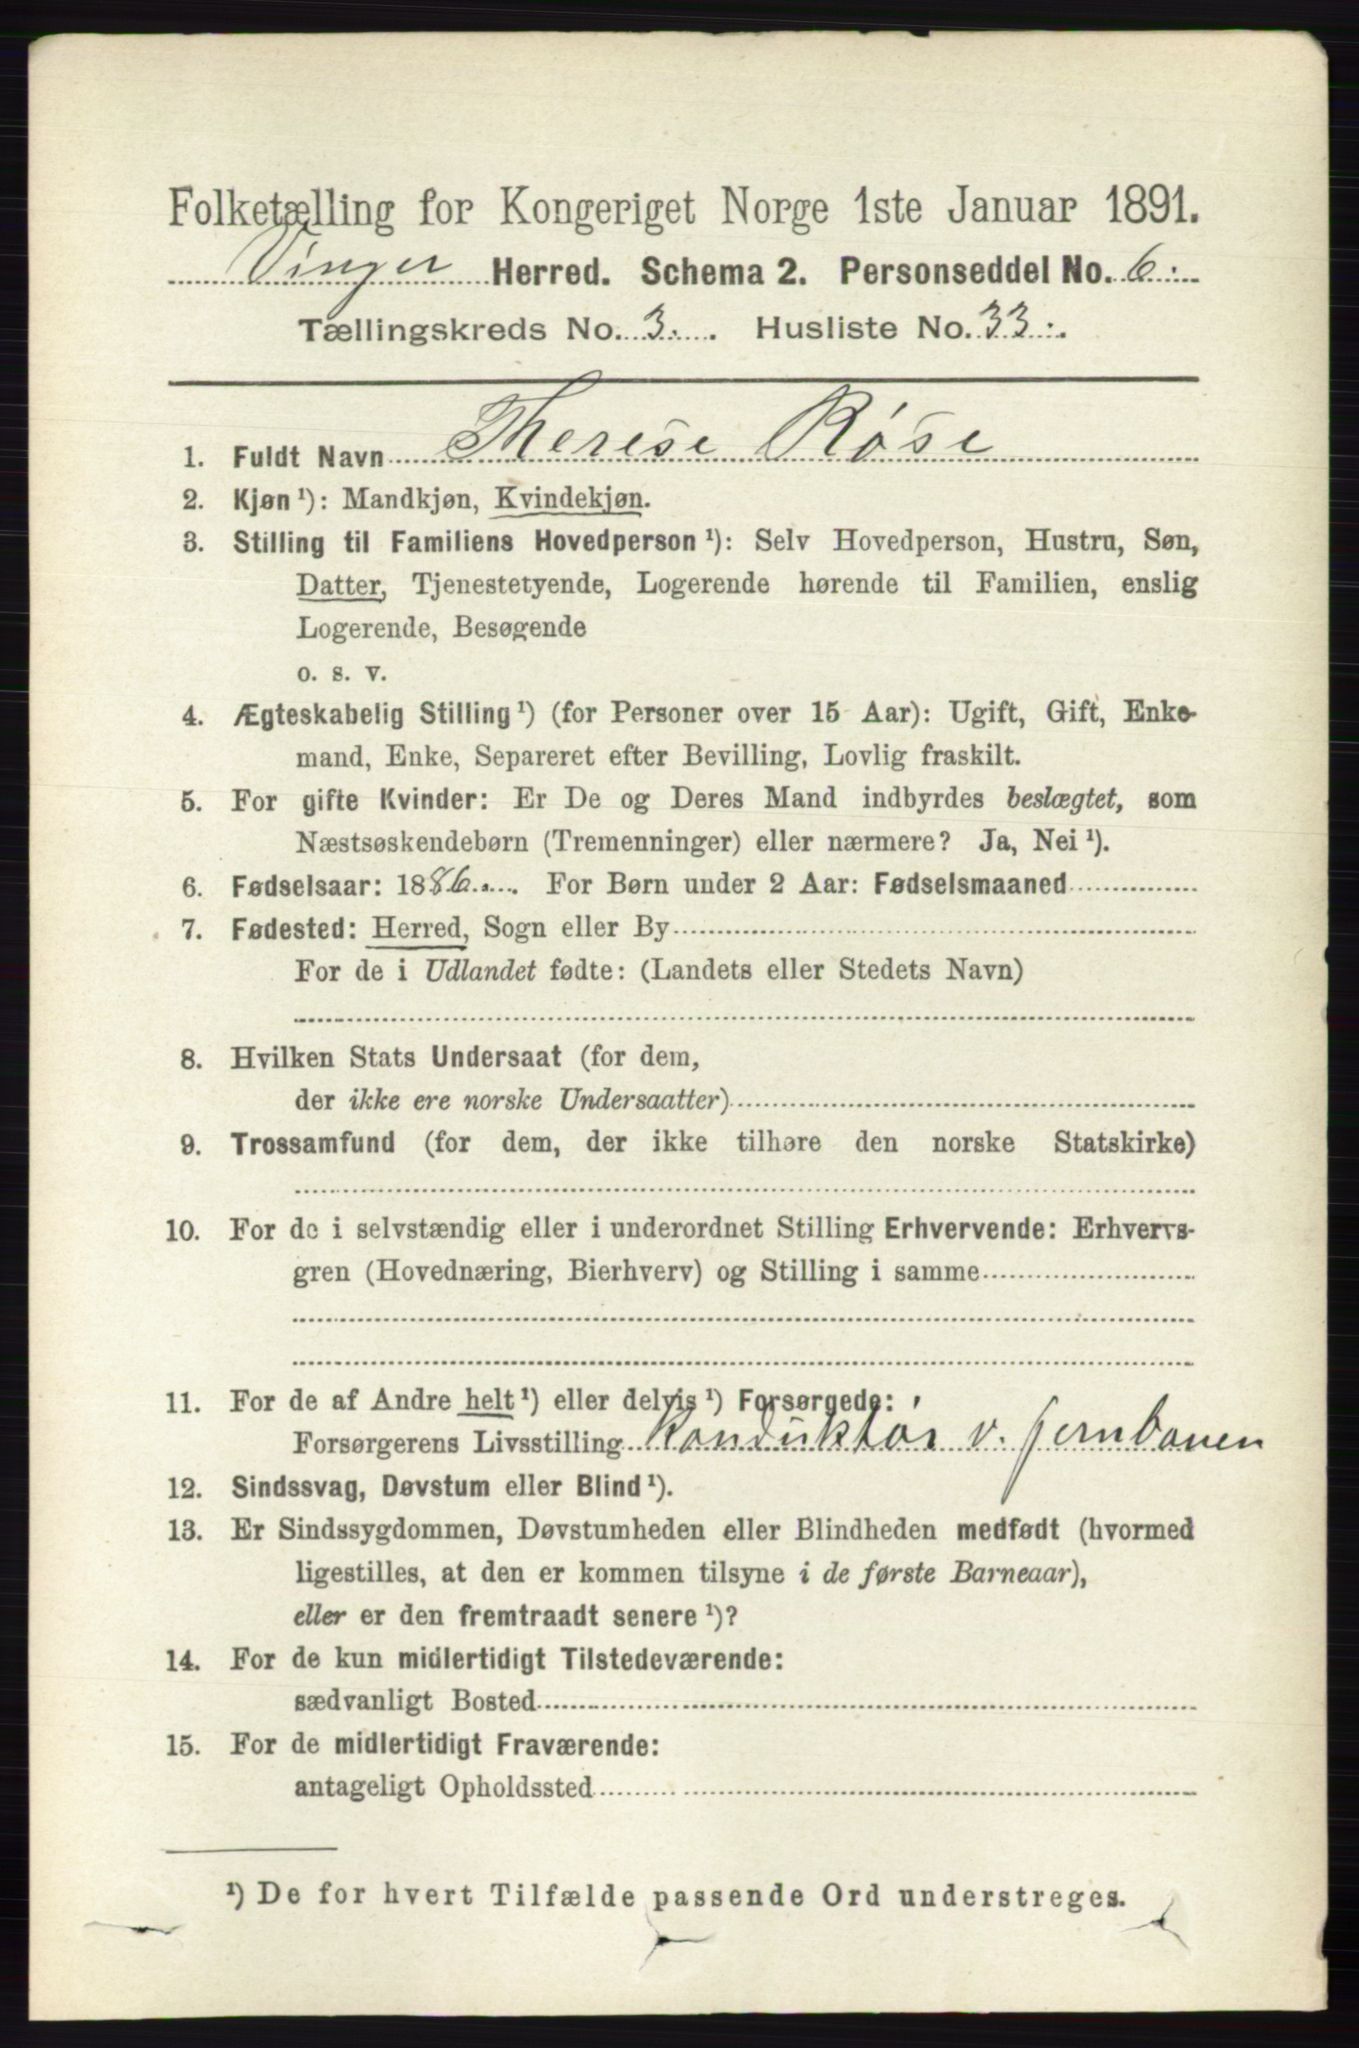 Folketælling for Kongeriget Norge 1ste Januar 1891.
Vinger Herred. Schema 2. Personseddel No. 6.
Tællingskreds No. 3. Husliste No. 33.
1. Fuldt Navn Therese Røse
2. Kjøn ¹): Mandkjøn, Kvindekjøn.
3. Stilling til Familiens Hovedperson ¹): Selv Hovedperson, Hustru, Søn,
Datter, Tjenestetyende, Logerende hørende til Familien, enslig
Logerende, Besøgende
o. s. v.
4. Ægteskabelig Stilling ¹) (for Personer over 15 Aar): Ugift, Gift, Enke-
mand, Enke, Separeret efter Bevilling, Lovlig fraskilt.
5. For gifte Kvinder: Er De og Deres Mand indbyrdes beslægtet, som
Næstsøskendebørn (Tremenninger) eller nærmere? Ja, Nei ¹).
6. Fødselsaar: 1886. For Børn under 2 Aar: Fødselsmaaned
7. Fødested: Herred, Sogn eller By
For de i Udlandet fødte: (Landets eller Stedets Navn)
8. Hvilken Stats Undersaat (for dem,
der ikke ere norske Undersaatter)
9. Trossamfund (for dem, der ikke tilhøre den norske Statskirke)
10. For de i selvstændig eller i underordnet Stilling Erhvervende: Erhvervs-
gren (Hovednæring, Bierhverv) og Stilling i samme
11. For de af Andre helt ¹) eller delvis ¹) Forsørgede:
Forsørgerens Livsstilling Konduktør v. jernbanen
12. Sindssvag, Døvstum eller Blind ¹).
13. Er Sindssygdommen, Døvstumheden eller Blindheden medfødt (hvormed
ligestilles, at den er kommen tilsyne i de første Barneaar),
eller er den fremtraadt senere ¹)?
14. For de kun midlertidigt Tilstedeværende:
sædvanligt Bosted
15. For de midlertidigt Fraværende:
antageligt Opholdssted
¹) De for hvert Tilfælde passende Ord understreges.